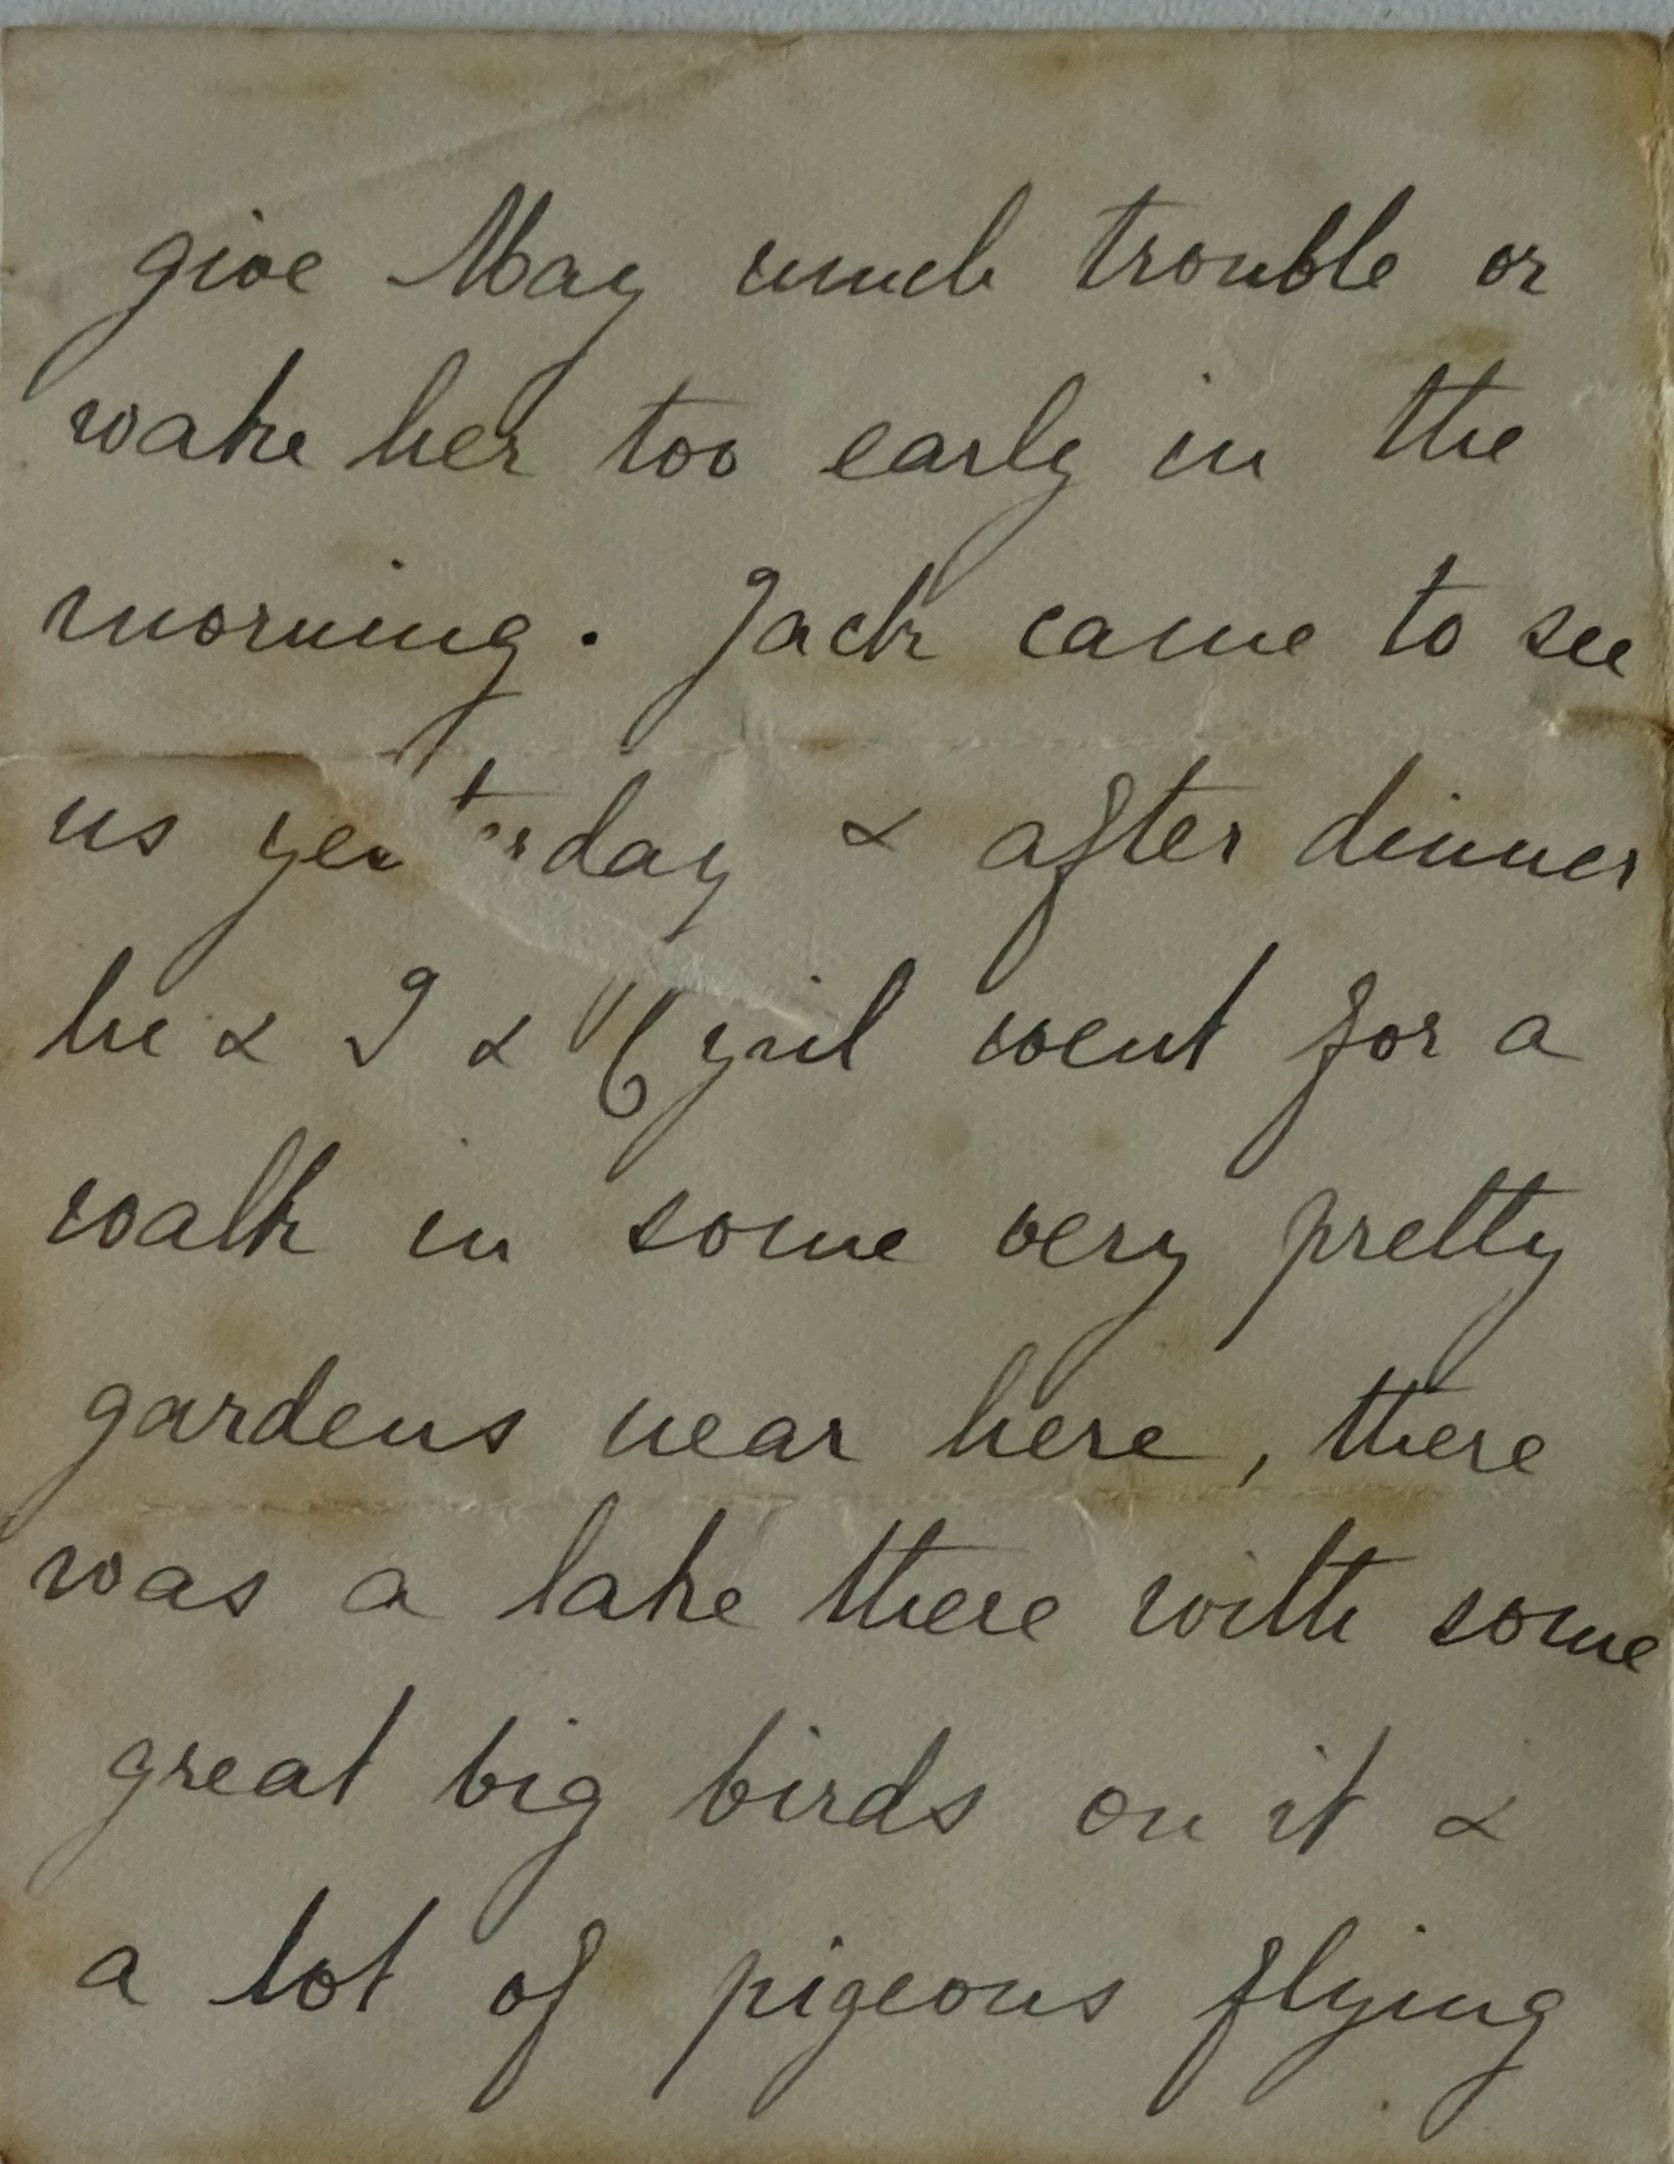 give May much trouble or
wake her too early in the
morning. Jack came to see
us yesterday & after dinner
he & I & Cyril went for a
walk in some very pretty
gardens near here, there
was a lake there with some
great big birds on it &
a lot of pigeons flying